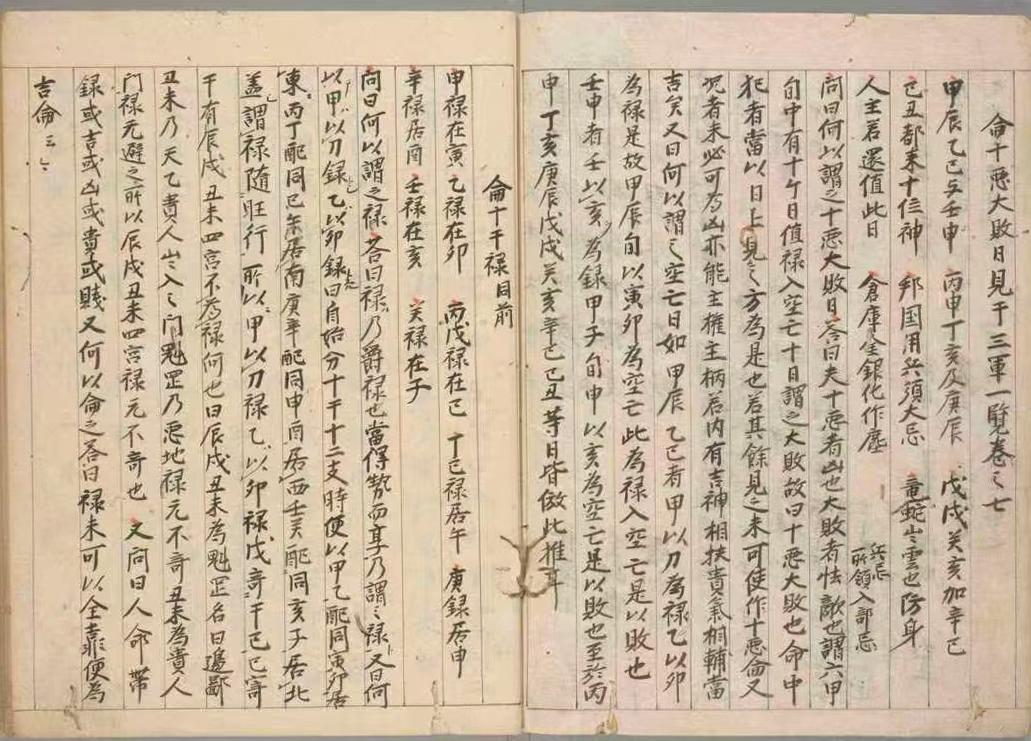 侖十悪大敗日見于三軍一覧巻之七
甲辰乙巳与壬申 丙申丁亥及庚辰 戊戌癸亥加辛巳
己丑都来十位神 邦国用兵須大忌 竜蛇出雲也防身
人主若還値此日 倉庫金銀化作塵 兵忌所領入部忌
問曰何以謂之十悪大敗日答曰夫十悪者凶也大敗者怯敵也謂六甲
旬中有十个日値禄入空亡十日謂之大敗故曰十悪大敗也命中
犯者當以日上見之方為是也若其餘見之未可使作十悪侖又
况者未必可為凶亦能主権主柄若内有吉神相扶貴氣相輔當
吉矣又曰何以謂之空亡日如甲辰乙巳者甲以刀為禄乙以卯
為禄是故甲辰旬以寅卯為空亡此為禄入空亡是以敗也
壬申者壬以亥為録甲子旬申以亥為空亡是以敗也至於丙
申丁亥庚辰戊戌癸亥辛巳己丑等日皆倣此推耳
侖十干禄目前
甲禄在寅 乙禄在卯 丙戊禄在巳 丁己禄居午 庚録居申
辛禄居酉 壬禄在亥 癸禄在子
問曰何以謂之禄答曰禄乃爵禄也當得勢而享乃謂之禄又曰何
以甲以刀録乙以卯録曰自始分十干十二支時便以甲乙配同寅卯居
東丙丁配同巳午居南庚辛配同申酉居西壬癸配同亥子居北
盖謂禄随旺行所以甲以刀禄乙以卯禄戊寄干巳己寄
午有辰戌丑未四宮不為禄何也曰辰戌丑未為魁罡名曰邊鄙
丑未乃天乙貴人出入之門魁罡乃悪地禄元不寄丑未為貴人
門禄元避之所以辰戌丑未四宮禄元不寄也 又問曰人命帯
録或吉或凶或貴或賎又何以侖之答曰禄未可以全靠便為
吉侖